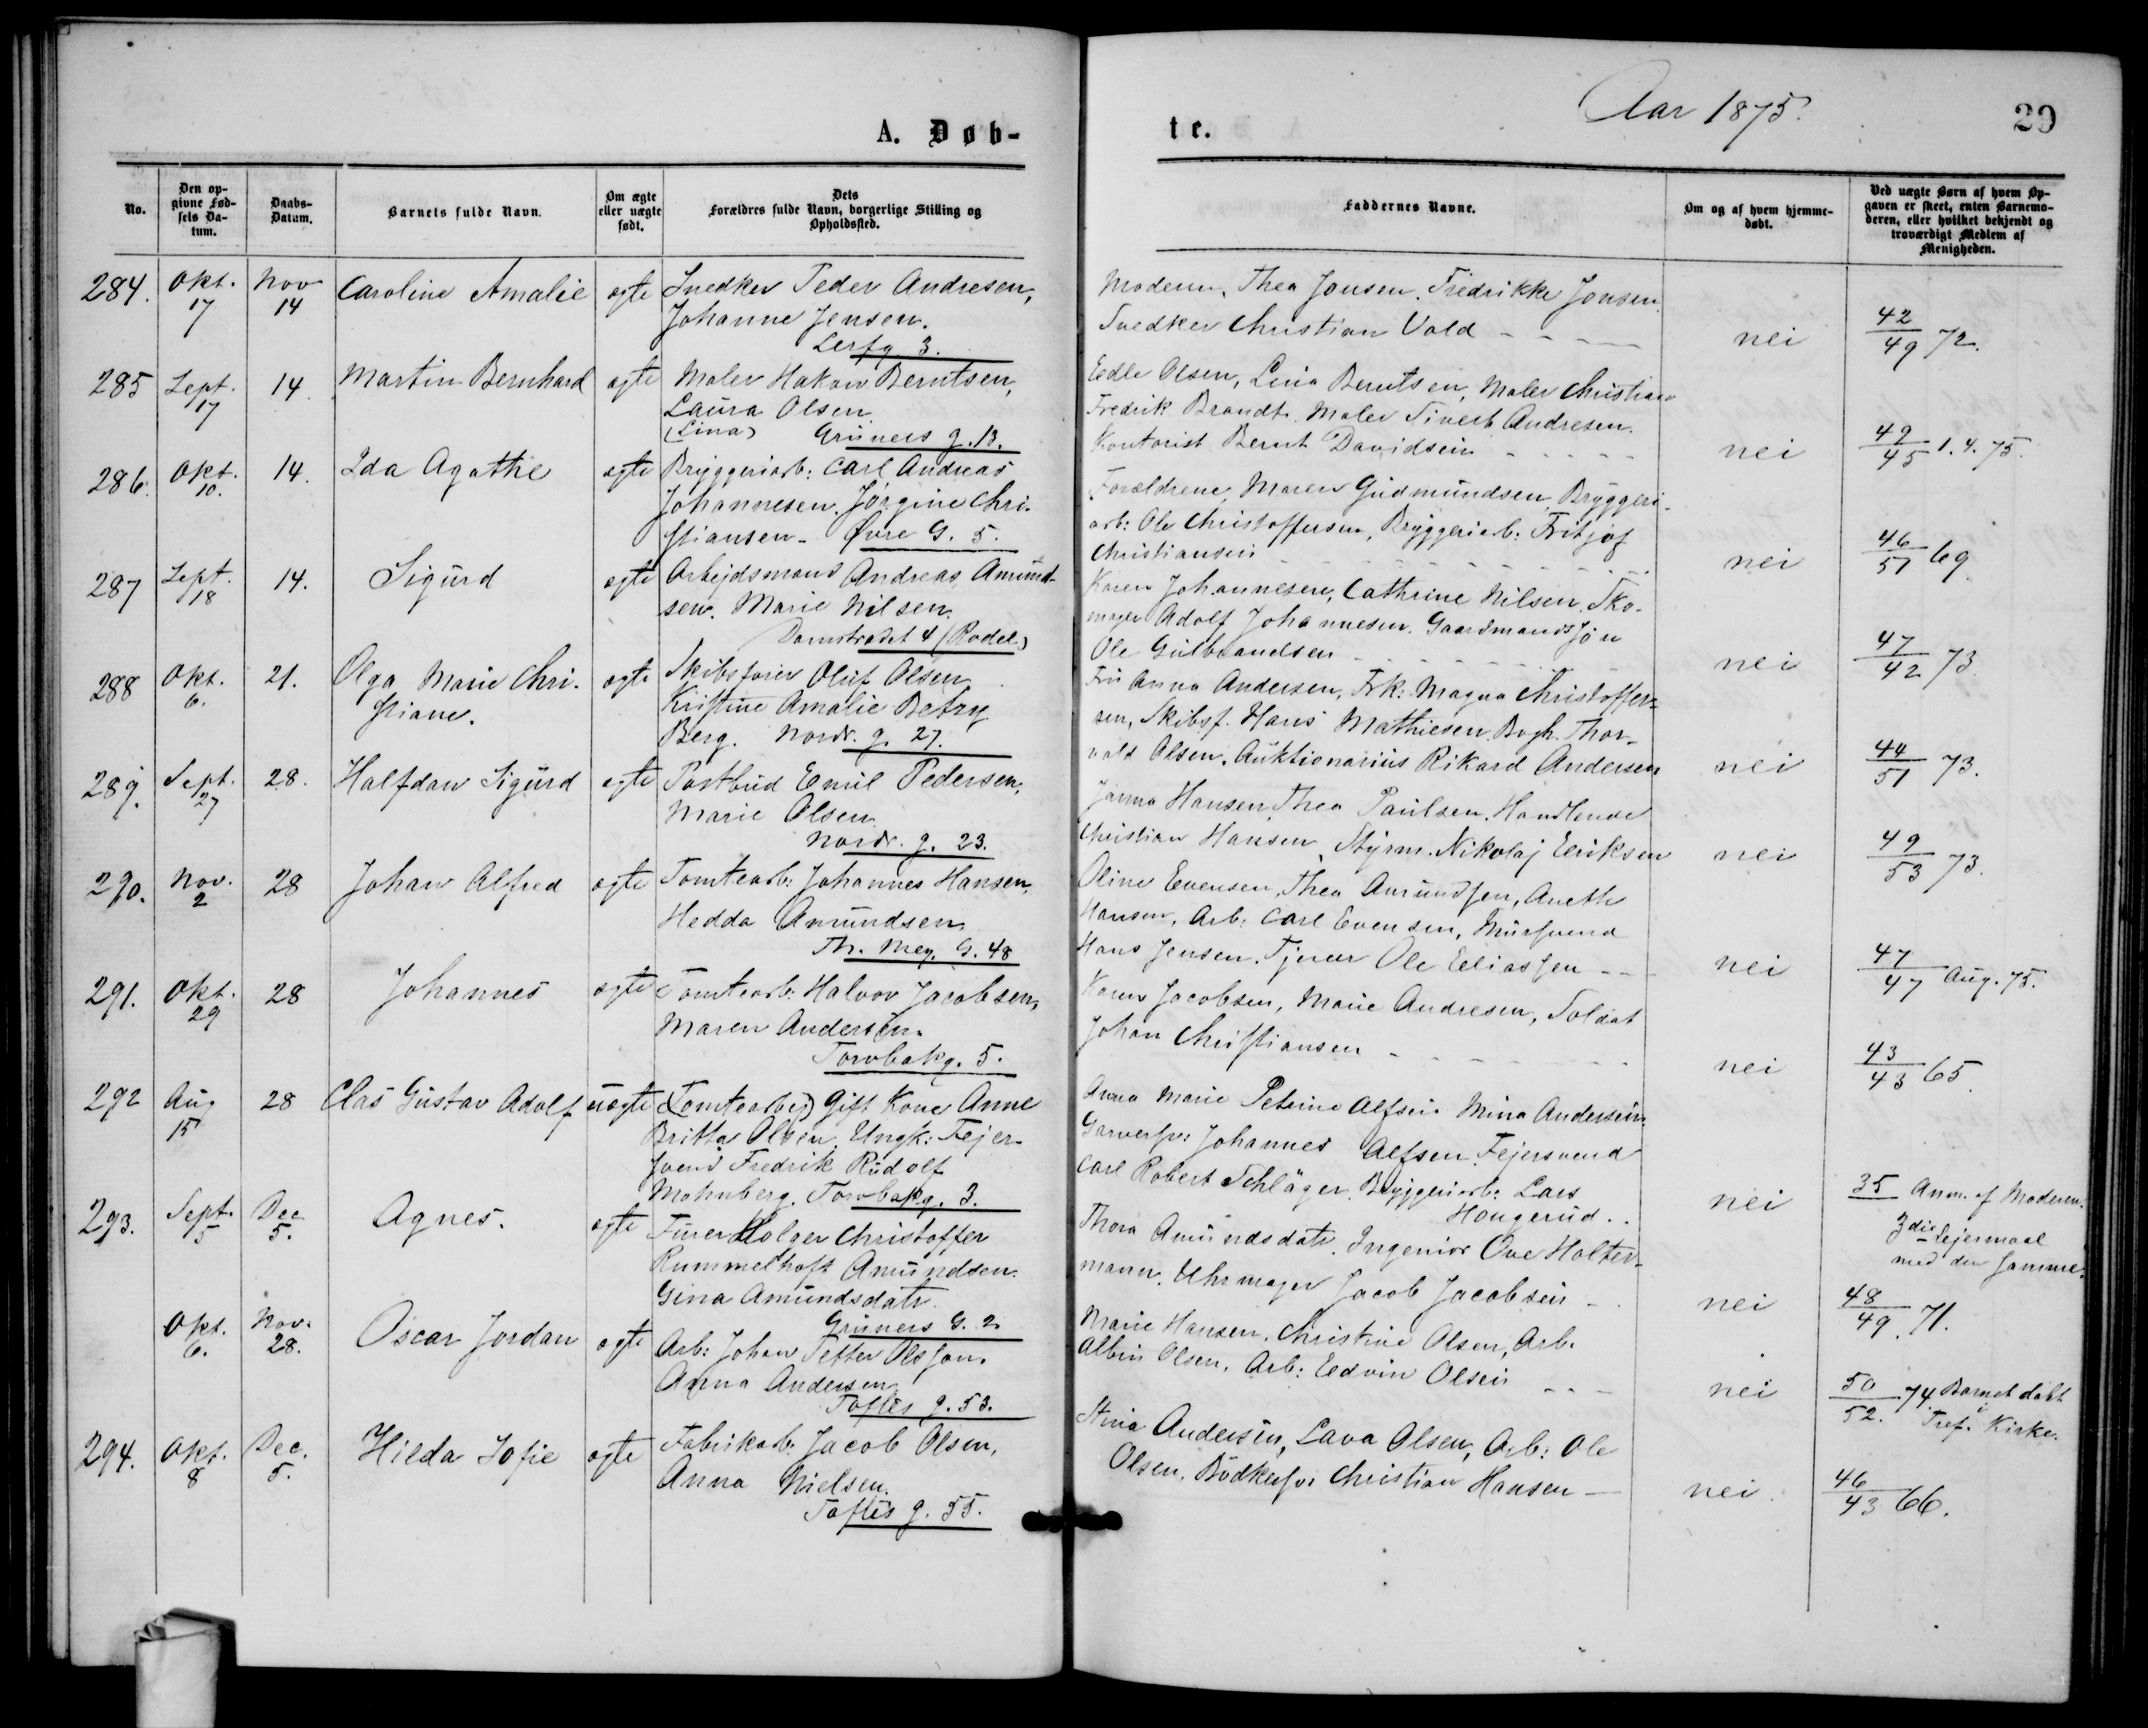 A. Døb-
No.
Den op-
givne Fød-
sels Da-
tum.
Daabs-
Datum.
Barnets fulde Navn.
Om ægte
eller uægte
født.
Dets
Forældres fulde Navn, borgerlige Stilling og
Opholdssted.
284. Okt. 17 Nov 14 Caroline Amalie ægte Snedker Peder Andresen,
Johanne Jensen.
Lerfg 3.
285 Sept. 17 14. Martin Bernhard ægte Maler Hakon Berntsen,
Laura Olsen
(Lina) Grüners g. 13.
286. Okt. 10. 14. Ida Agathe ægte Bryggeriarb: Carl Andreas
Johannesen. Jørgine Chri-
stiansen - Øvre G. 5.
287 Sept. 18 14. Sigurd ægte Arbejdsmand Andreas Amund-
sen. Marie Nilsen.
Damstredet 4 (Rodel.)
288 Okt. 6. 21. Olga Marie Chri-
stiane. ægte Skibsfører Oluf Olsen
Kristine Amalie Betzy
Berg. Nordr. g. 27.
289. Sept. 27 28. Halfdan Sigurd ægte Postbud Emil Pedersen,
Marie Olsen
Nordr. g. 23.
290. Nov. 2 28 Johan Alfred ægte Tomtearb: Johannes Hansen,
Hedda Amundsen
Th. Mey. G. 48
291. Okt. 29 28 Johannes ægte Tomtearb: Halvor Jacobsen,
Maren Andersen.
Torvbakg. 5.
292 Aug 15 28 Clas Gustav Adolf uægte (Tomtearbej) Gift Kone Anne
Britta Olsen, Ungk: Fejer-
svend Fredrik Rudolf
Mohnberg. Torvbakg. 3.
293. Sept. 5 Dec 5. Agnes. ægte Furer Holger Christoffer
Rummelhoft Amundsen.
Gina Amundsdatr.
Grüners G. 2
Okt. 6. Nov. 28. Oscar Jordan ægte Arb: Johan Petter Olsson.
Anna Andersen
Toftes g. 53.
294. Okt. 8 Dec. 5. Hilda Sofie ægte Fabrikarb: Jacob Olsen,
Anna Nielsen.
Toftes g. 55.
te.
Aar 1875.
29
Faddernes Navne.
Om og af hvem hjemme-
døbt.
Ved uægte Børn af hvem Op-
gaven er skeet, enten Barnemo-
deren, eller hvilket bekjendt og
troværdigt Medlem af
Menigheden.
Moderen, Thea Jonsen. Fredrikke Jonsen.
Snedker Christian Vold - - - nei 42/49 72.
Edle Olsen, Lina Berntsen, Maler Christian
Fredrik Brandt. Maler Sivert Andresen.
Kontorist Bernt Davidsen - - - nei 49/45 1.4.75.
Forældrene, Maren Gudmundsen, Bryggeri-
arb: Ole Christoffersen, Bryggeriarb: Fritjof
Christiansen - - - nei 46/51 69.
Karen Johannesen, Cathrine Nilsen. Sko-
mager Adolf Johannesen. Gaardmandssøn
Ole Gulbrandsen - - - nei 47/42 73.
Fru Anna Andersen, Frk: Magna Christoffer-
sen, Skibsf. Hans Mathiesen, Bogh. Thor-
vald Olsen, Auktionarius Rikard Andersen nei 44/51 73.
Janna Hansen, Thea Paulsen. Handlende
Christian Hansen, Styrm. Nikolaj Eriksen nei 49/53 73.
Oline Evensen, Thea Amundsen, Anethe
Hansen, Arb: Carl Evensen, Mursvend
Hans Jensen. Tjener Ole Eliassen - - nei 47/47 Aug. 75.
Karen Jacobsen, Marie Andresen, Soldat
Johan Christiansen - - - nei 43/43 65.
Anna Marie Petrine Alfsen. Mina Andersen.
Garversv: Johannes Alfsen. Fejersvend
Carl Robert Schläger. Bryggeriarb: Lars
Haugerud. . nei 35 Anm. af Moderen.
3die Lejermaal
med den samme.
Thora Amundsdatr. Ingeniør Ove Holter-
mann. Uhrmager Jacob Jacobsen - nei 48/49 71.
Marie Hansen, Christine Olsen, Arb.
Albin Olsen. Arb: Edvin Olsen - - - nei 50/52. 74. Barnet døbt
i Tref. Kirke.
Stina Andersen, Lava Olsen, Arb: Ole
Olsen. Bødkersv: Christian Hansen - nei. 46/43 66.